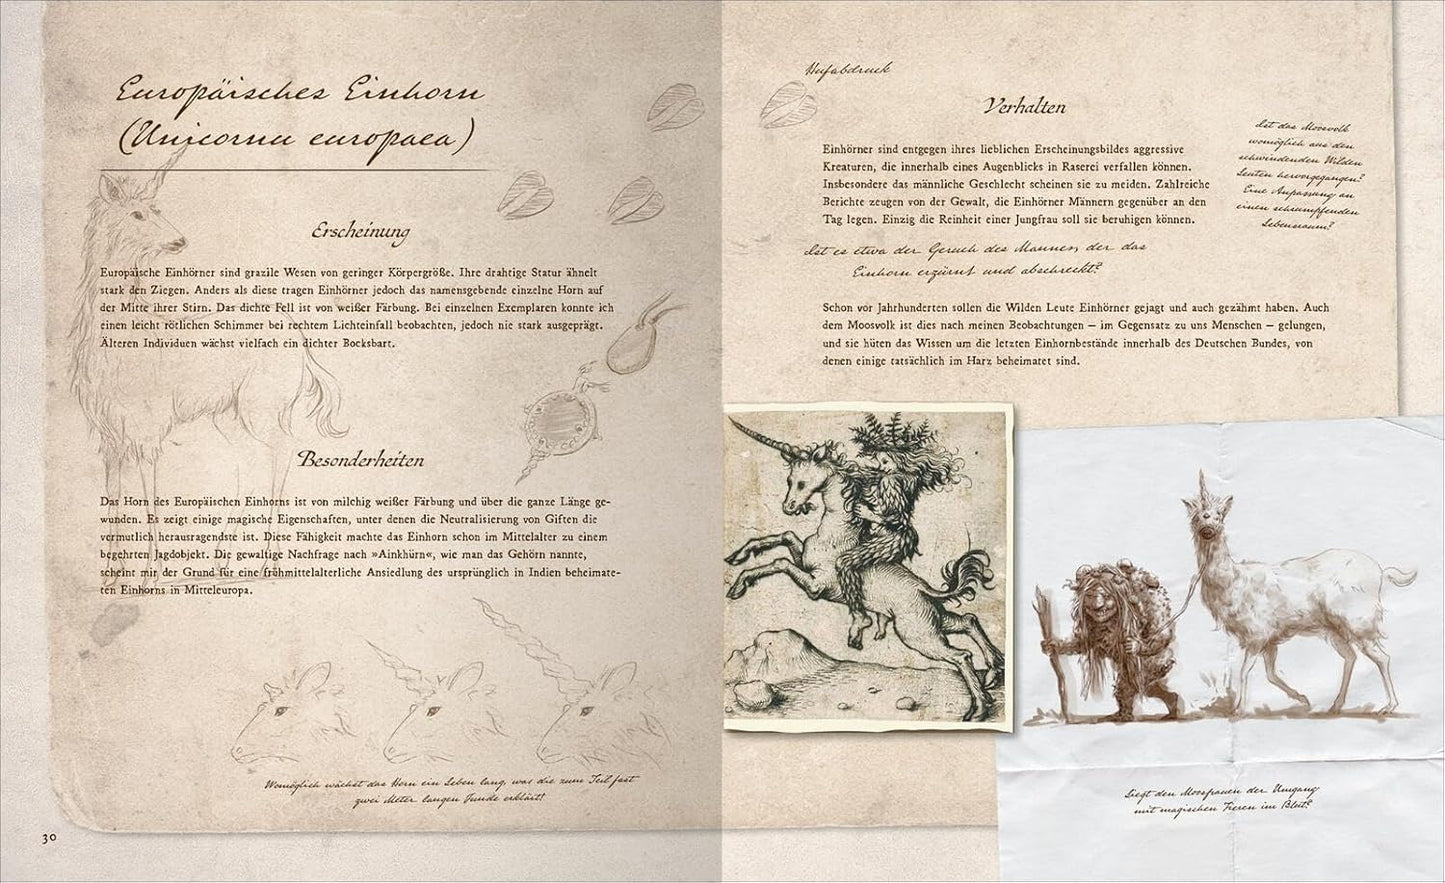 Europäisches Einhorn
(Unicornu europaea)
Erscheinung
Europäische Einhörner sind grazile Wesen von geringer Körpergröße. Ihre drahtige Statur ähnelt
stark den Ziegen. Anders als diese tragen Einhörner jedoch das namensgebende einzelne Horn auf
der Mitte ihrer Stirn. Das dichte Fell ist von weißer Färbung. Bei einzelnen Exemplaren konnte ich
einen leicht rötlichen Schimmer bei rechtem Lichteinfall beobachten, jedoch nie stark ausgeprägt.
Älteren Individuen wächst vielfach ein dichter Bocksbart.
Besonderheiten
Das Horn des Europäischen Einhorns ist von milchig weißer Färbung und über die ganze Länge ge-
wunden. Es zeigt einige magische Eigenschaften, unter denen die Neutralisierung von Giften die
vermutlich herausragendste ist. Diese Fähigkeit machte das Einhorn schon im Mittelalter zu einem
begehrten Jagdobjekt. Die gewaltige Nachfrage nach »Ainkhürn«, wie man das Gehörn nannte,
scheint mir der Grund für eine frühmittelalterliche Ansiedlung des ursprünglich in Indien beheimate-
ten Einhorns in Mitteleuropa.
Womöglich wächst das Horn ein Leben lang, was die zum Teil fast
zwei Meter langen Funde erklärt!
30
Hufabdruck
Verhalten
Einhörner sind entgegen ihres lieblichen Erscheinungsbildes aggressive
Kreaturen, die innerhalb eines Augenblicks in Raserei verfallen können.
Insbesondere das männliche Geschlecht scheinen sie zu meiden. Zahlreiche
Berichte zeugen von der Gewalt, die Einhörner Männern gegenüber an den
Tag legen. Einzig die Reinheit einer Jungfrau soll sie beruhigen können.
Ist es etwa der Geruch des Mannes, der das
Einhorn erzürnt und abschreckt?
Ist das Moosvolk
womöglich aus den
schwindenden Wilden
Leuten hervorgegangen?
Eine Anpassung an
einen schrumpfenden
Lebensraum?
Schon vor Jahrhunderten sollen die Wilden Leute Einhörner gejagt und auch gezähmt haben. Auch
dem Moosvolk ist dies nach meinen Beobachtungen – im Gegensatz zu uns Menschen – gelungen,
und sie hüten das Wissen um die letzten Einhornbestände innerhalb des Deutschen Bundes, von
denen einige tatsächlich im Harz beheimatet sind.
Liegt den Moosfrauen der Umgang
mit magischen Tieren im Blut?